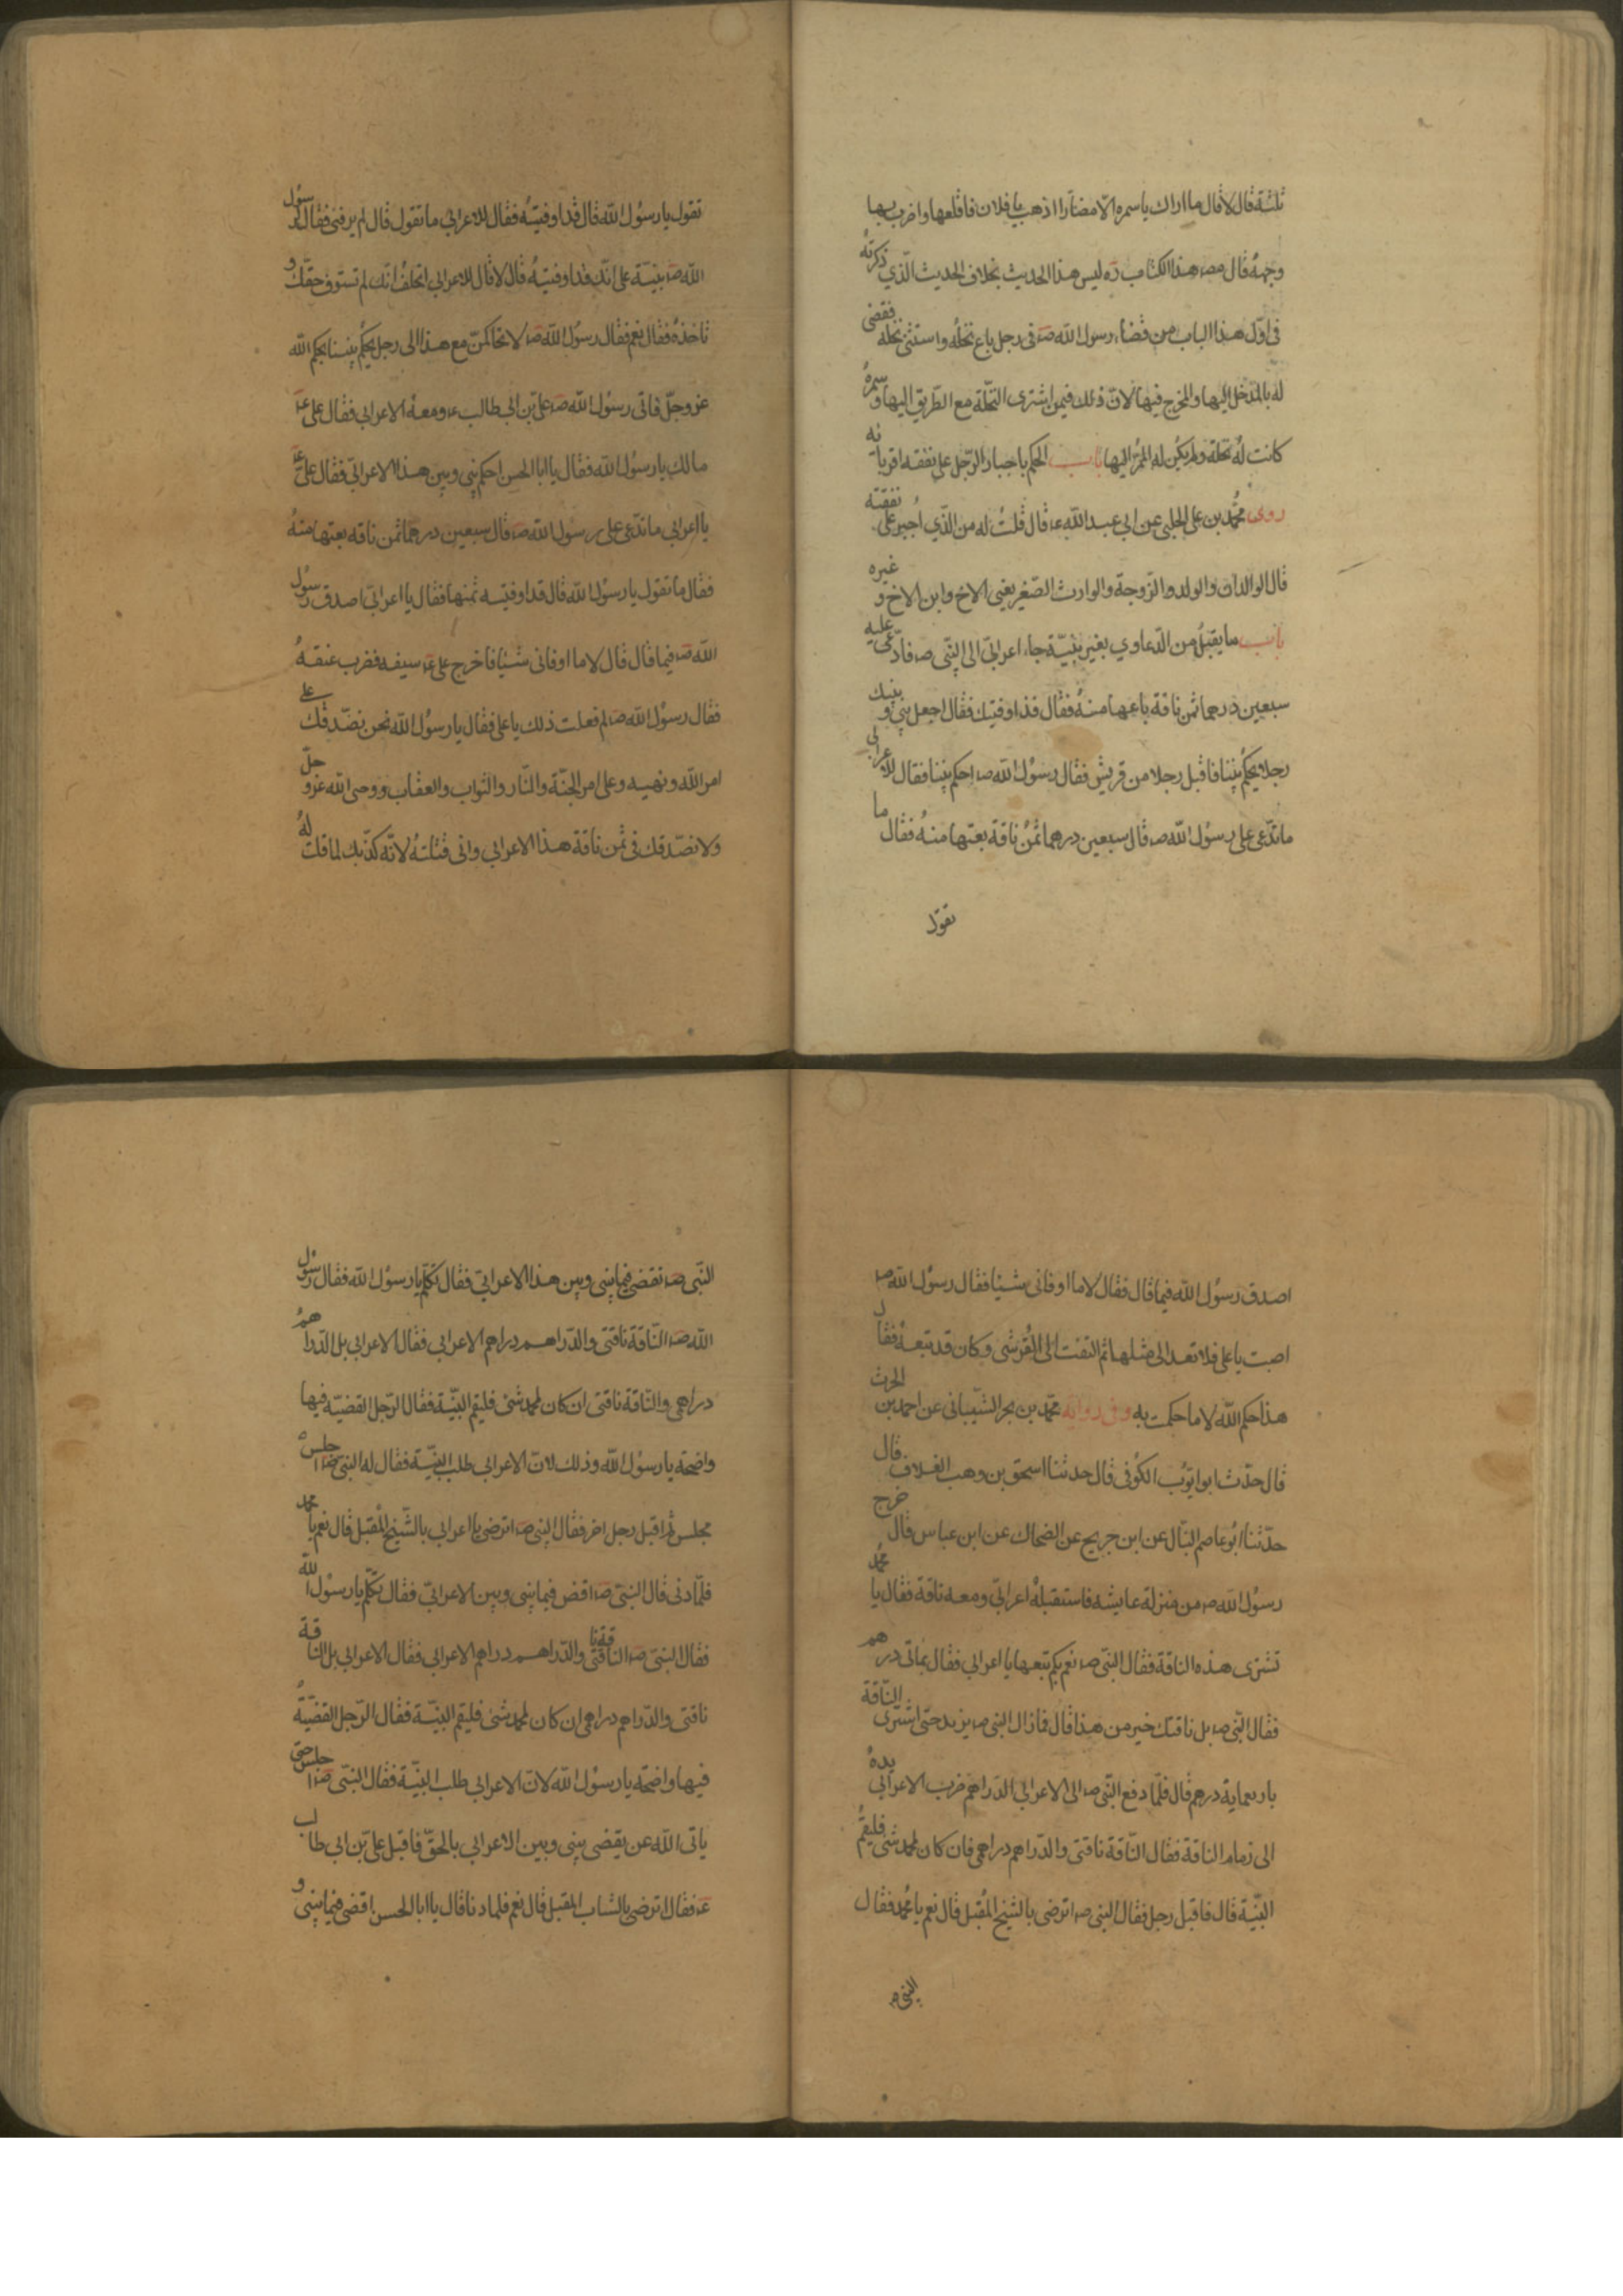 ثلثة قال لا قال ما اراك يا سمره الّا مضاّرا اذهب يا فلان فاقلعها واضرب بها
وجههُ قال مص هذا الكتاب ره ليس هذا الحديث بخلاف الحديث الّذي ذكرتهُ
فى اوّل هذا الباب من قضاء رسول الله صه فى رجل باع نخلهُ واستثنى نخلة فقضى
له بالمدخل اليها والمخرج فيها لانّ ذلك فيمن اشترى النخّلة مع الطّريق اليها و سمرهُ
كانت لهُ نخلة ولم يكن له الممّر اليها باب الحكم باجبار الرّجل على نفقه اقربائه
روى محمّد بن على الحلبى عن ابي عبد الله ع قال قلتُ له من الّذي اُجبر على نفقته
قال الوالدان والولد والزّوجة والوارث الصّغير يعنى الاخ وابن الاخ و غيره
باب ما يقبلُ من الدّعاوي بغير بيّنة جاء اعرابىّ الى النّبى صه فادّعى عليه
سبعين درهما ثمن ناقة باعها منهُ فقال قد اوفيتك فقال اجعل بينى و بينك
رجلا يحكُم بيننا فاقبل رجلا من قريش فقال رسوُل الله صه احكم بيننا فقال للاعرابى
ما تدّعى على رسوُل الله صه قال سبعين درهما ثمنُ ناقة بعتها منهُ فقال ما
تقوّل
تقول يا رسوُل الله قال قد اوفيتهُ فقال للاعرابي ما تقول قال لم يوفنى فقال لرسوُل
الله صه بيّنة على انّك قد اوفيتهُ قال لا قال للاعرابى اتحلفُ انّك لم تستوف حقّك و
تاخذهُ فقال نعم فقال رسوُل الله صه لاتحاكمنّ مع هذا الى رجل يحكُم بيننا بحكم الله
عزوجلّ فاتى رسوُل الله صه علىّ بن ابي طالب ع ومعهُ الاعرابى فقال على ع
مالك يا رسوُل الله فقال يا ابا الحسن احكم بينى وبين هذا الاعرابىّ فقال علىّ ع
يا اعرابى ما تدّعى على رسوُل الله صه قال سبعين درهما ثمن ناقه بعتها منهُ
فقال ما تقول يا رسوُل الله قال قد اوفيته ثمنها فقال يا اعرابىّ اصدق رسوُل
الله صه فيما قال قال لا ما اوفانى شيئا فاخرج على ع سيفه فضرب عنقهُ
فقال رسوُل الله صه لم فعلت ذلك يا على فقال يا رسوُل الله نحن نصّدقك على
امر الله ونهيه وعلى امر الجنّة والنّار والثواب والعقاب ووحى الله عزو جلّ
ولا نصّدقك فى ثمن ناقة هذا الاعرابى وانى قتلتهُ لانّه كذّبك لما قلت لهُ
اصدق رسوُل الله فيما قال فقال لا ما اوفانى شيئا فقال رسوُل الله صه
اصبت يا على فلا تعد الى مثلها ثمّ التفت الى القُرشى وكان قد تبعهُ فقال
هذا حكم الله لا ما حكمت به وفى رواية محّمد بن بحر الشيّبانى عن احمد بن الحرث
قال حدّث ابو ايوّب الكوُفى قال حدثنا اسحق بن وهب العلاف قال
حدّثنا ابُو عاصم النبال عن ابن جريج عن الضحاك عن ابن عباس قال خرج
رسوُل الله صه من منزلة عايشه فاستقبلهُ اعرابىّ ومعه ناقة فقال يا محمّد
تشترى هذه الناقة فقال النّبى صه نعم بكم تبعها يا اعرابى فقال بماتى درهم
فقال النّبى صه بل ناقتك خير من هذا قال فما زال النبى صه يزيد حتى اشترى النّاقة
باربعماية درهم قال فلمّا دفع النّبى صه الى الاعرابى الدّراهم ضرب الاعرابى يدهُ
الى زمام الناقة فقال النّاقة ناقتى والدّراهم دراهمى فان كان لمحمد شئ فليقم
البيّنة قال فاقبل رجل فقال النبى صه اترضى بالشيخ المُقبل قال نعم يا محُمد فقال
النبى صه
النّبى صه تقضى فيما بينى وبين هذا الاعرابىّ فقال تكلّم يا رسوُل الله فقال رسوُل
الله صه النّاقة ناقتى والدّراهم دراهم الاعرابي فقال الاعرابى بل الدّراهمُ
دراهمى والنّاقة ناقتى ان كان لمحمد شئ فليقم البيّنة فقال الرّجل القضيّة فيها
واضحة يا رسوُل الله وذلك لانّ الاعرابى طلب البيّنة فقال له النبى صه اجلس
مجلس ثم اقبل رجل اخر فقال النبى صه اترضى يا اعرابى بالشّيخ المُقبل قال نعم يا محمد
فلمّا دنى قال النبىّ صه اقض فيما بينى وبين الاعرابىّ فقال تكّلم يا رسوُل الله
فقال النبىّ صه الناقة ناقتى والدّراهم دراهم الاعرابى فقال الاعرابى بل الناقة
ناقتى والدّراهم دراهمى ان كان لمحمد شئ فليقم البيّنة فقال الرّجل القضيّةُ
فيها واضحة يا رسوُل الله لانّ الاعرابى طلب البيّنة فقال النبّى صه اجلس حتى
ياتى الله عن يقضى بينى وبين الاعرابى بالحقّ فاقبل علىّ بن ابى طالب
ع فقال اترضى بالشاب المقبل قال نعم فلما دنا قال يا ابا الحسن اقضى فيما بينى و